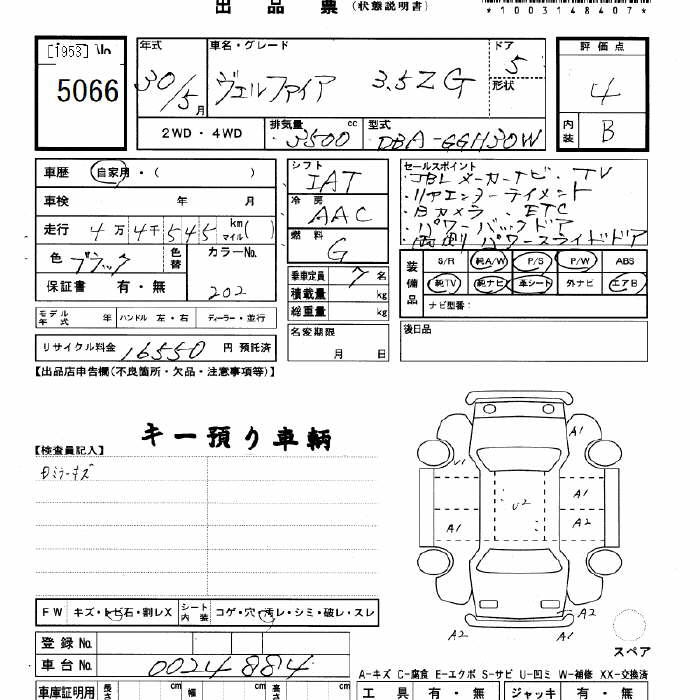 出品票(状態説明書)
*1003148407*
[1953] No
5066
年式 車名・グレード ドア 評価点
30/5月 ヴェルファイア 3.5ZG 5 形状 4
2WD・4WD 排気量 3500 cc 型式 DBA-GGH30W 内装 B
車歴 自家用・( )
車検 年 月
走行 4万4千545 km(マイル)( )
色 ブラック 色替 カラーNo. 202
保証書 有・無
シフト IAT
冷房 AAC
燃料 G
乗車定員 7名
積載量 kg
総重量 kg
名変期限 月 日
セールスポイント
・JBLメーカーナビ・TV
・リアエンターテイメント
・Bカメラ・ETC
・パワーバックドア
・両側パワースライドドア
装備品 S/R 純A/W P/S P/W ABS
純TV 純ナビ 革シート 外ナビ エアB
ナビ型番:
後日品
モデル年式 年 ハンドル 左・右 ディーラー・並行
リサイクル料金 16550 円 預託済
【出品店申告欄(不良箇所・欠品・注意事項等)】
キー預り車輌
【検査員記入】
ミラーキズ
A1
U1
U2 A1
A1 A2
A2
A2
スペア
FW キズ・トビ石・割レX シート内装 コゲ・穴・汚レ・シミ・破レ・スレ
登録No.
車台No. 0024884
A-キズ C-腐食 E-エクボ S-サビ U-凹ミ W-補修 XX-交換済
車庫証明用 長さ cm 幅 cm 高さ cm 工具 有・無 ジャッキ 有・無